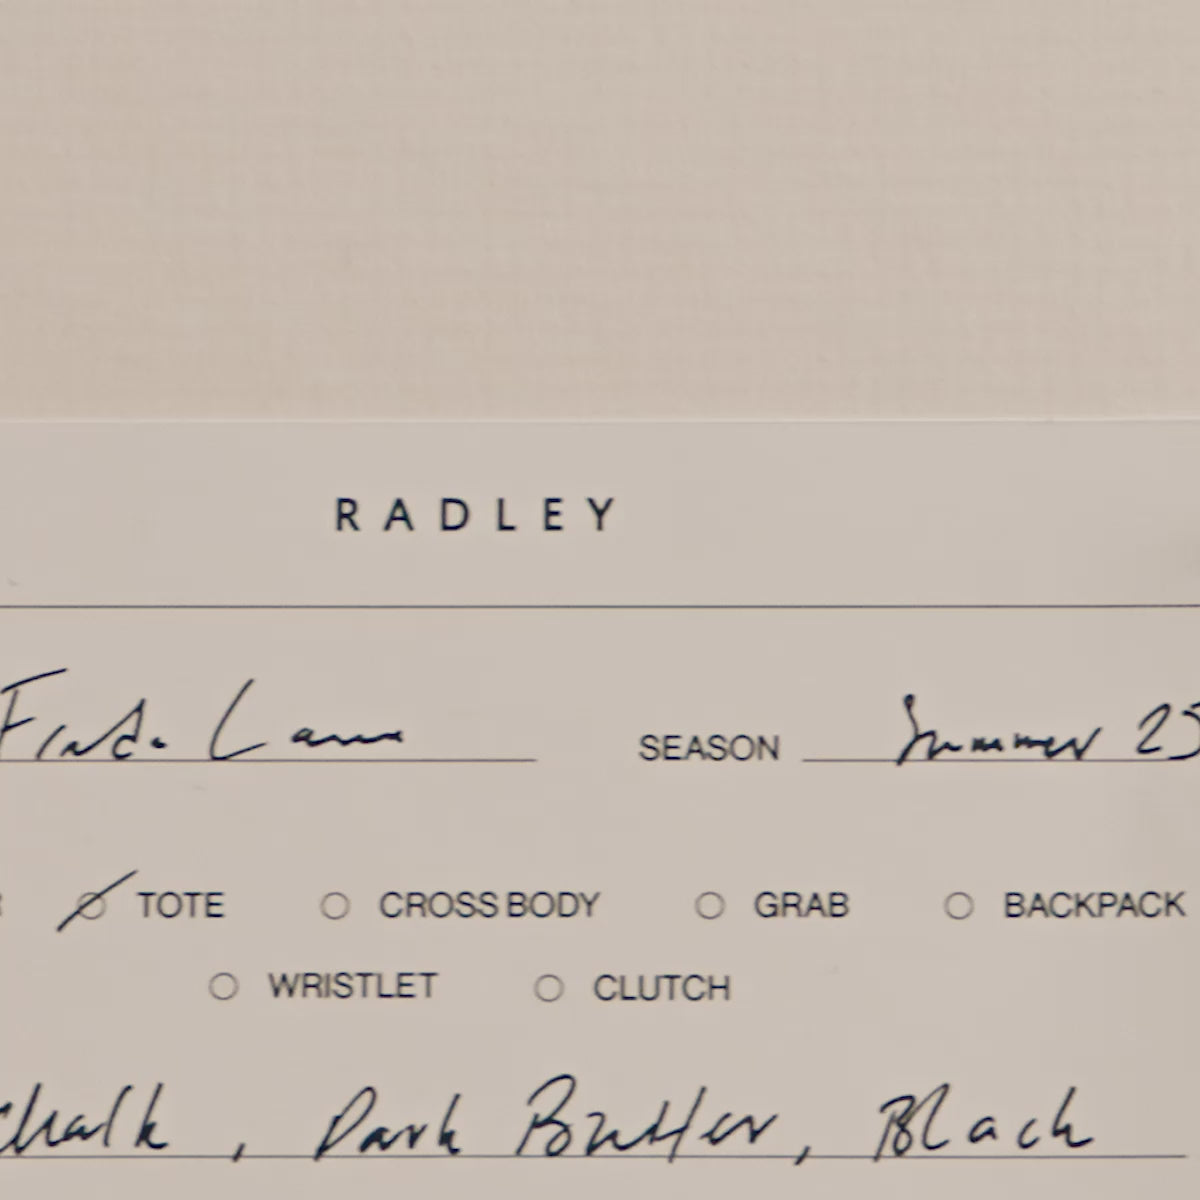 RADLEY
Lane SEASON Summer 25
TOTE CROSS BODY GRAB BACKPACK
WRISTLET CLUTCH
Chalk, Dark Butter, Black